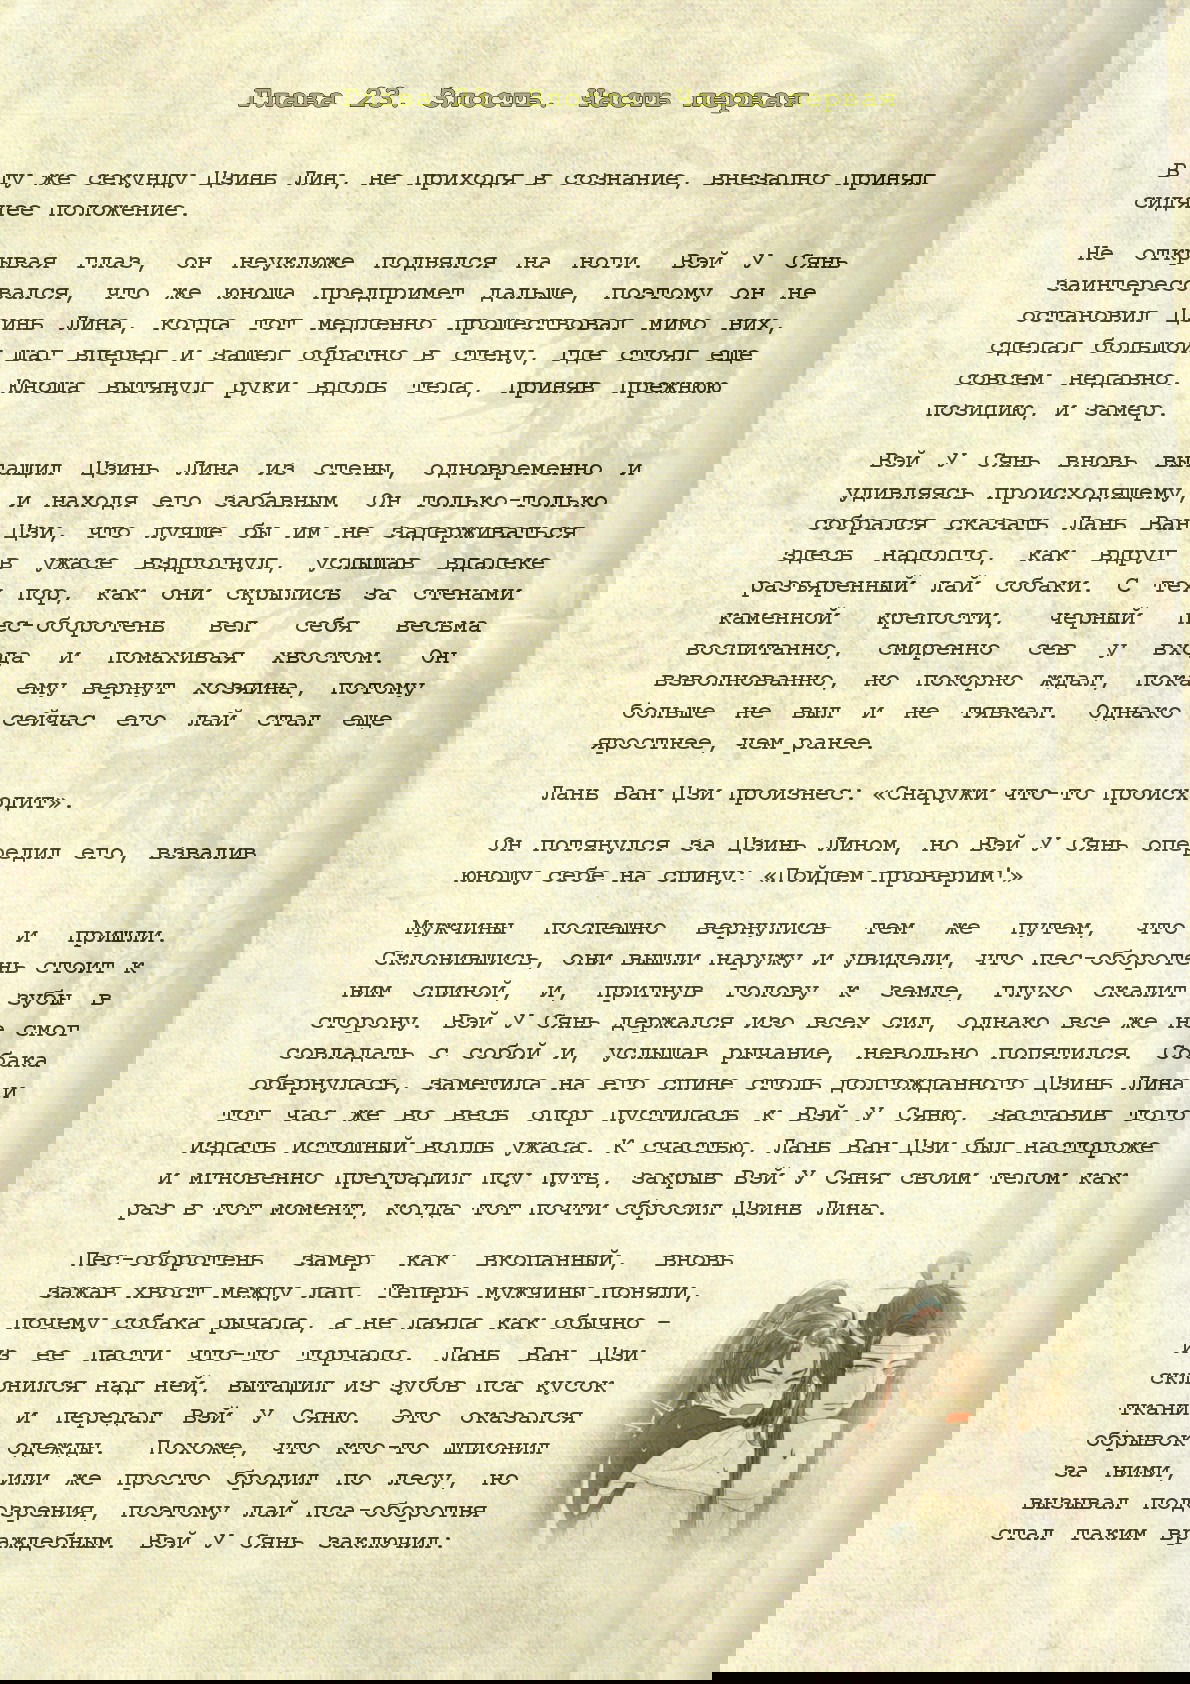 Глава 23. Злость. Часть первая
В ту же секунду Цзинь Лин, не приходя в сознание, внезапно принял
сидячее положение.
Не открывая глаз, он неуклюже поднялся на ноги. Вэй У Сянь
заинтересовался, что же юноша предпримет дальше, поэтому он не
остановил Цзинь Лина, когда тот медленно прошествовал мимо них,
сделал большой шаг вперед и зашел обратно в стену, где стоял еще
совсем недавно. Юноша вытянул руки вдоль тела, приняв прежнюю
позицию, и замер.
Вэй У Сянь вновь вытащил Цзинь Лина из стены, одновременно и
удивляясь происходящему, и находя его забавным. Он только-только
собрался сказать Лань Ван Цзи, что лучше бы им не задерживаться
здесь надолго, как вдруг в ужасе вздрогнул, услышав вдалеке
разъяренный лай собаки. С тех пор, как они скрылись за стенами
каменной крепости, черный пес-оборотень вел себя весьма
воспитанно, смиренно сев у входа и помахивая хвостом. Он
взволнованно, но покорно ждал, пока ему вернут хозяина, потому
больше не выл и не тявкал. Однако сейчас его лай стал еще
яростнее, чем ранее.
Лань Ван Цзи произнес: «Снаружи что-то происходит».
Он потянулся за Цзинь Лином, но Вэй У Сянь опередил его, взвалив
юношу себе на спину: «Пойдем проверим!»
Мужчины поспешно вернулись тем же путем, что и пришли.
Склонившись, они вышли наружу и увидели, что пес-оборотень стоит к
ним спиной, и, пригнув голову к земле, глухо скалит зубы в
сторону. Вэй У Сянь держался изо всех сил, однако все же не смог
совладать с собой и, услышав рычание, невольно попятился. Собака
обернулась, заметила на его спине столь долгожданного Цзинь Лина и
тот час же во весь опор пустилась к Вэй У Сяню, заставив того
издать истошный вопль ужаса. К счастью, Лань Ван Цзи был настороже
и мгновенно преградил псу путь, закрыв Вэй У Сяня своим телом как
раз в тот момент, когда тот почти сбросил Цзинь Лина.
Пес-оборотень замер как вкопанный, вновь
зажав хвост между лап. Теперь мужчины поняли,
почему собака рычала, а не лаяла как обычно –
из ее пасти что-то торчало. Лань Ван Цзи
склонился над ней, вытащил из зубов пса кусок
ткани и передал Вэй У Сяню. Это оказался
обрывок одежды. Похоже, что кто-то шпионил
за ними, или же просто бродил по лесу, но
вызывал подозрения, поэтому лай пса-оборотня
стал таким враждебным. Вэй У Сянь заключил: